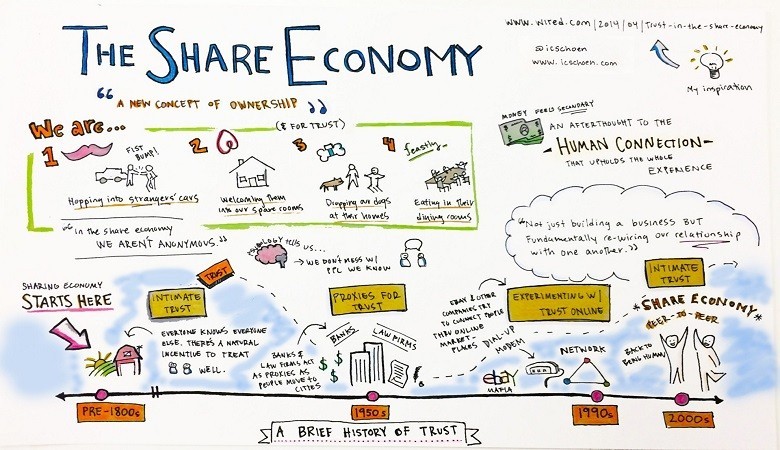 THE SHARE ECONOMY
"A NEW CONCEPT OF OWNERSHIP"
(& FOR TRUST)
www.wired.com/2014/04/trust-in-the-share-economy
@icschoen
www.icschoen.com
My inspiration
We are...
1
FIST BUMP!
Hopping into strangers' cars
2
Welcoming them
into our spare rooms
3
Dropping our dogs
at their homes
4
feastly
Eating in their
dining rooms
"In the share economy
WE AREN'T ANONYMOUS."
MONEY FEELS SECONDARY
AN AFTERTHOUGHT TO THE
HUMAN CONNECTION
THAT UPHOLDS THE WHOLE
EXPERIENCE
"Not just building a business BUT
Fundamentally re-wiring our relationship
with one another."
TELLS US...
→ WE DON'T MESS W/
PPL WE KNOW
SHARING ECONOMY
STARTS HERE
INTIMATE
TRUST
TRUST
EVERYONE KNOWS EVERYONE
ELSE, THERE'S A NATURAL
INCENTIVE TO TREAT
WELL.
PROXIES FOR
TRUST
BANKS
LAW FIRMS
BANKS &
LAW FIRMS ACT
AS PROXIES AS
PEOPLE MOVE TO
CITIES
EBAY & OTHER
COMPANIES TRY
TO CONNECT PEOPLE
THRU ONLINE
MARKET-
PLACES
EXPERIMENTING W/
TRUST ONLINE
DIAL-UP
MODEM
NETWORK
INTIMATE
TRUST
*SHARE ECONOMY*
PEER-TO-PEER
BACK TO
BEING HUMAN
PRE-1800s
1950s
1990s
2000s
A BRIEF HISTORY OF TRUST